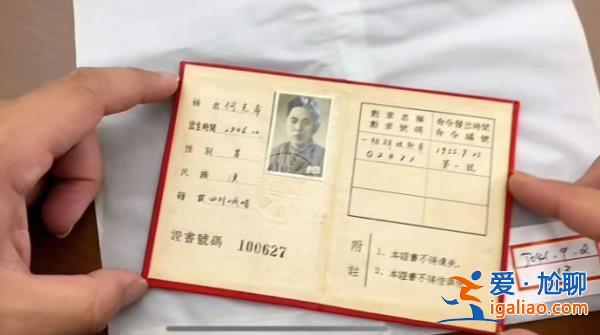 姓名 何克希
出生時間 1906.12
性別 男
民族 漢
籍貫 四川峨嵋
證書號碼 100627
勳章名稱
勳章號碼
命令發出時間
命令編號
一級解放勳章
1955.9.
第一號
附註
1. 本證書不得遺失。
2. 本證書不得借
爱·尬聊
igaliao.com